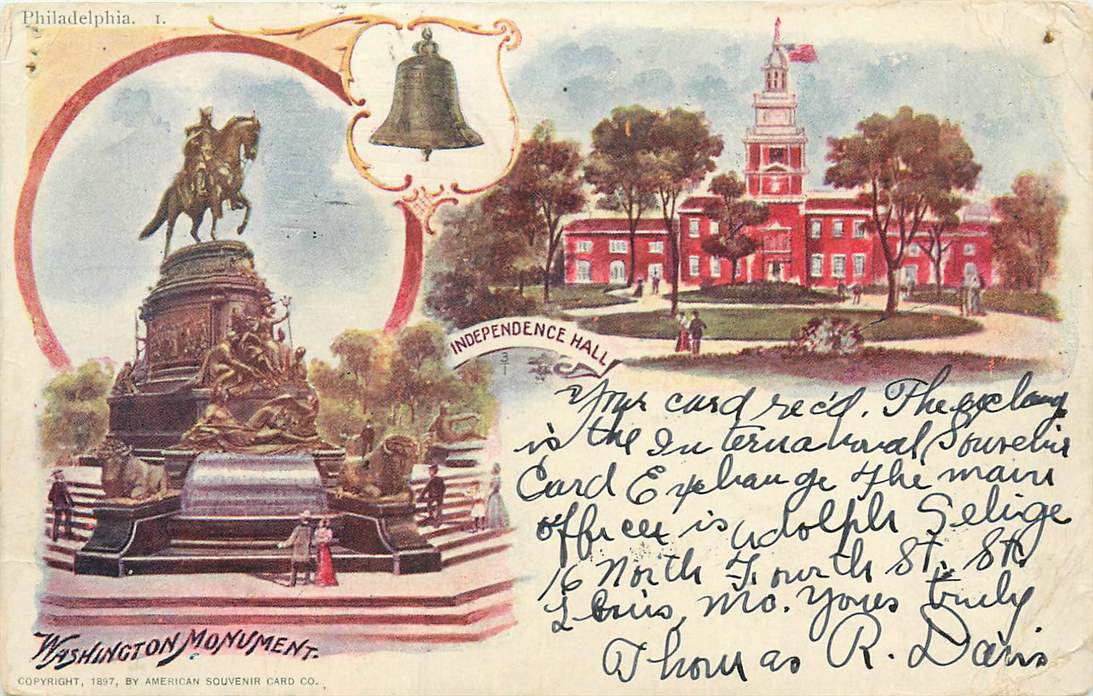 Philadelphia. 1.
INDEPENDENCE HALL
Your card rec'd. The exchang
is the International Souvenir
Card Exchange the main
officer is Adolph Selige
16 North Fourth St. St.
Louis, Mo. Yours truly
Thomas R. Davis
WASHINGTON MONUMENT.
COPYRIGHT, 1897, BY AMERICAN SOUVENIR CARD CO.